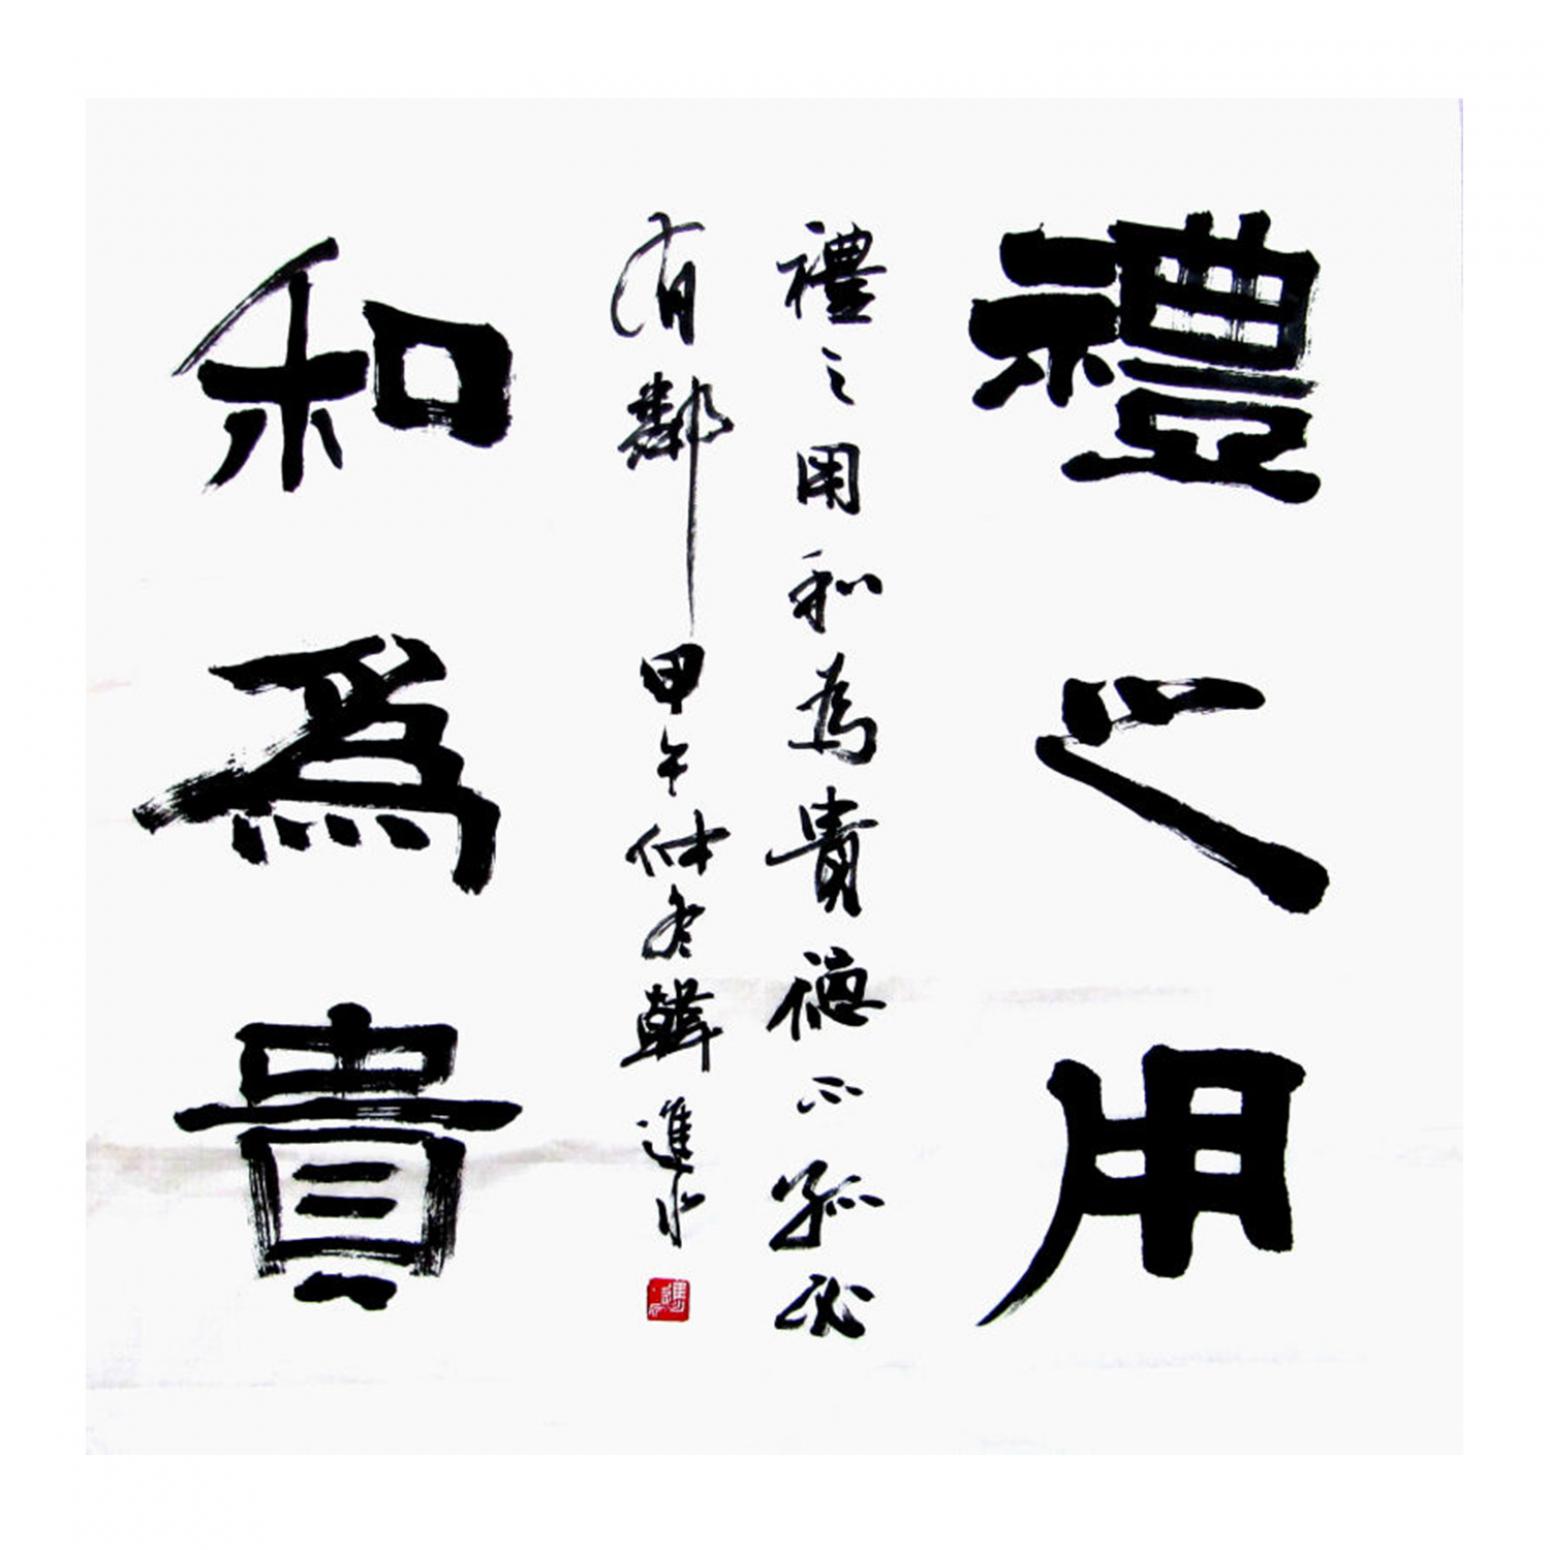 禮之用
禮之用和為貴德不孤必
有鄰甲午仲冬韓進水
和爲貴